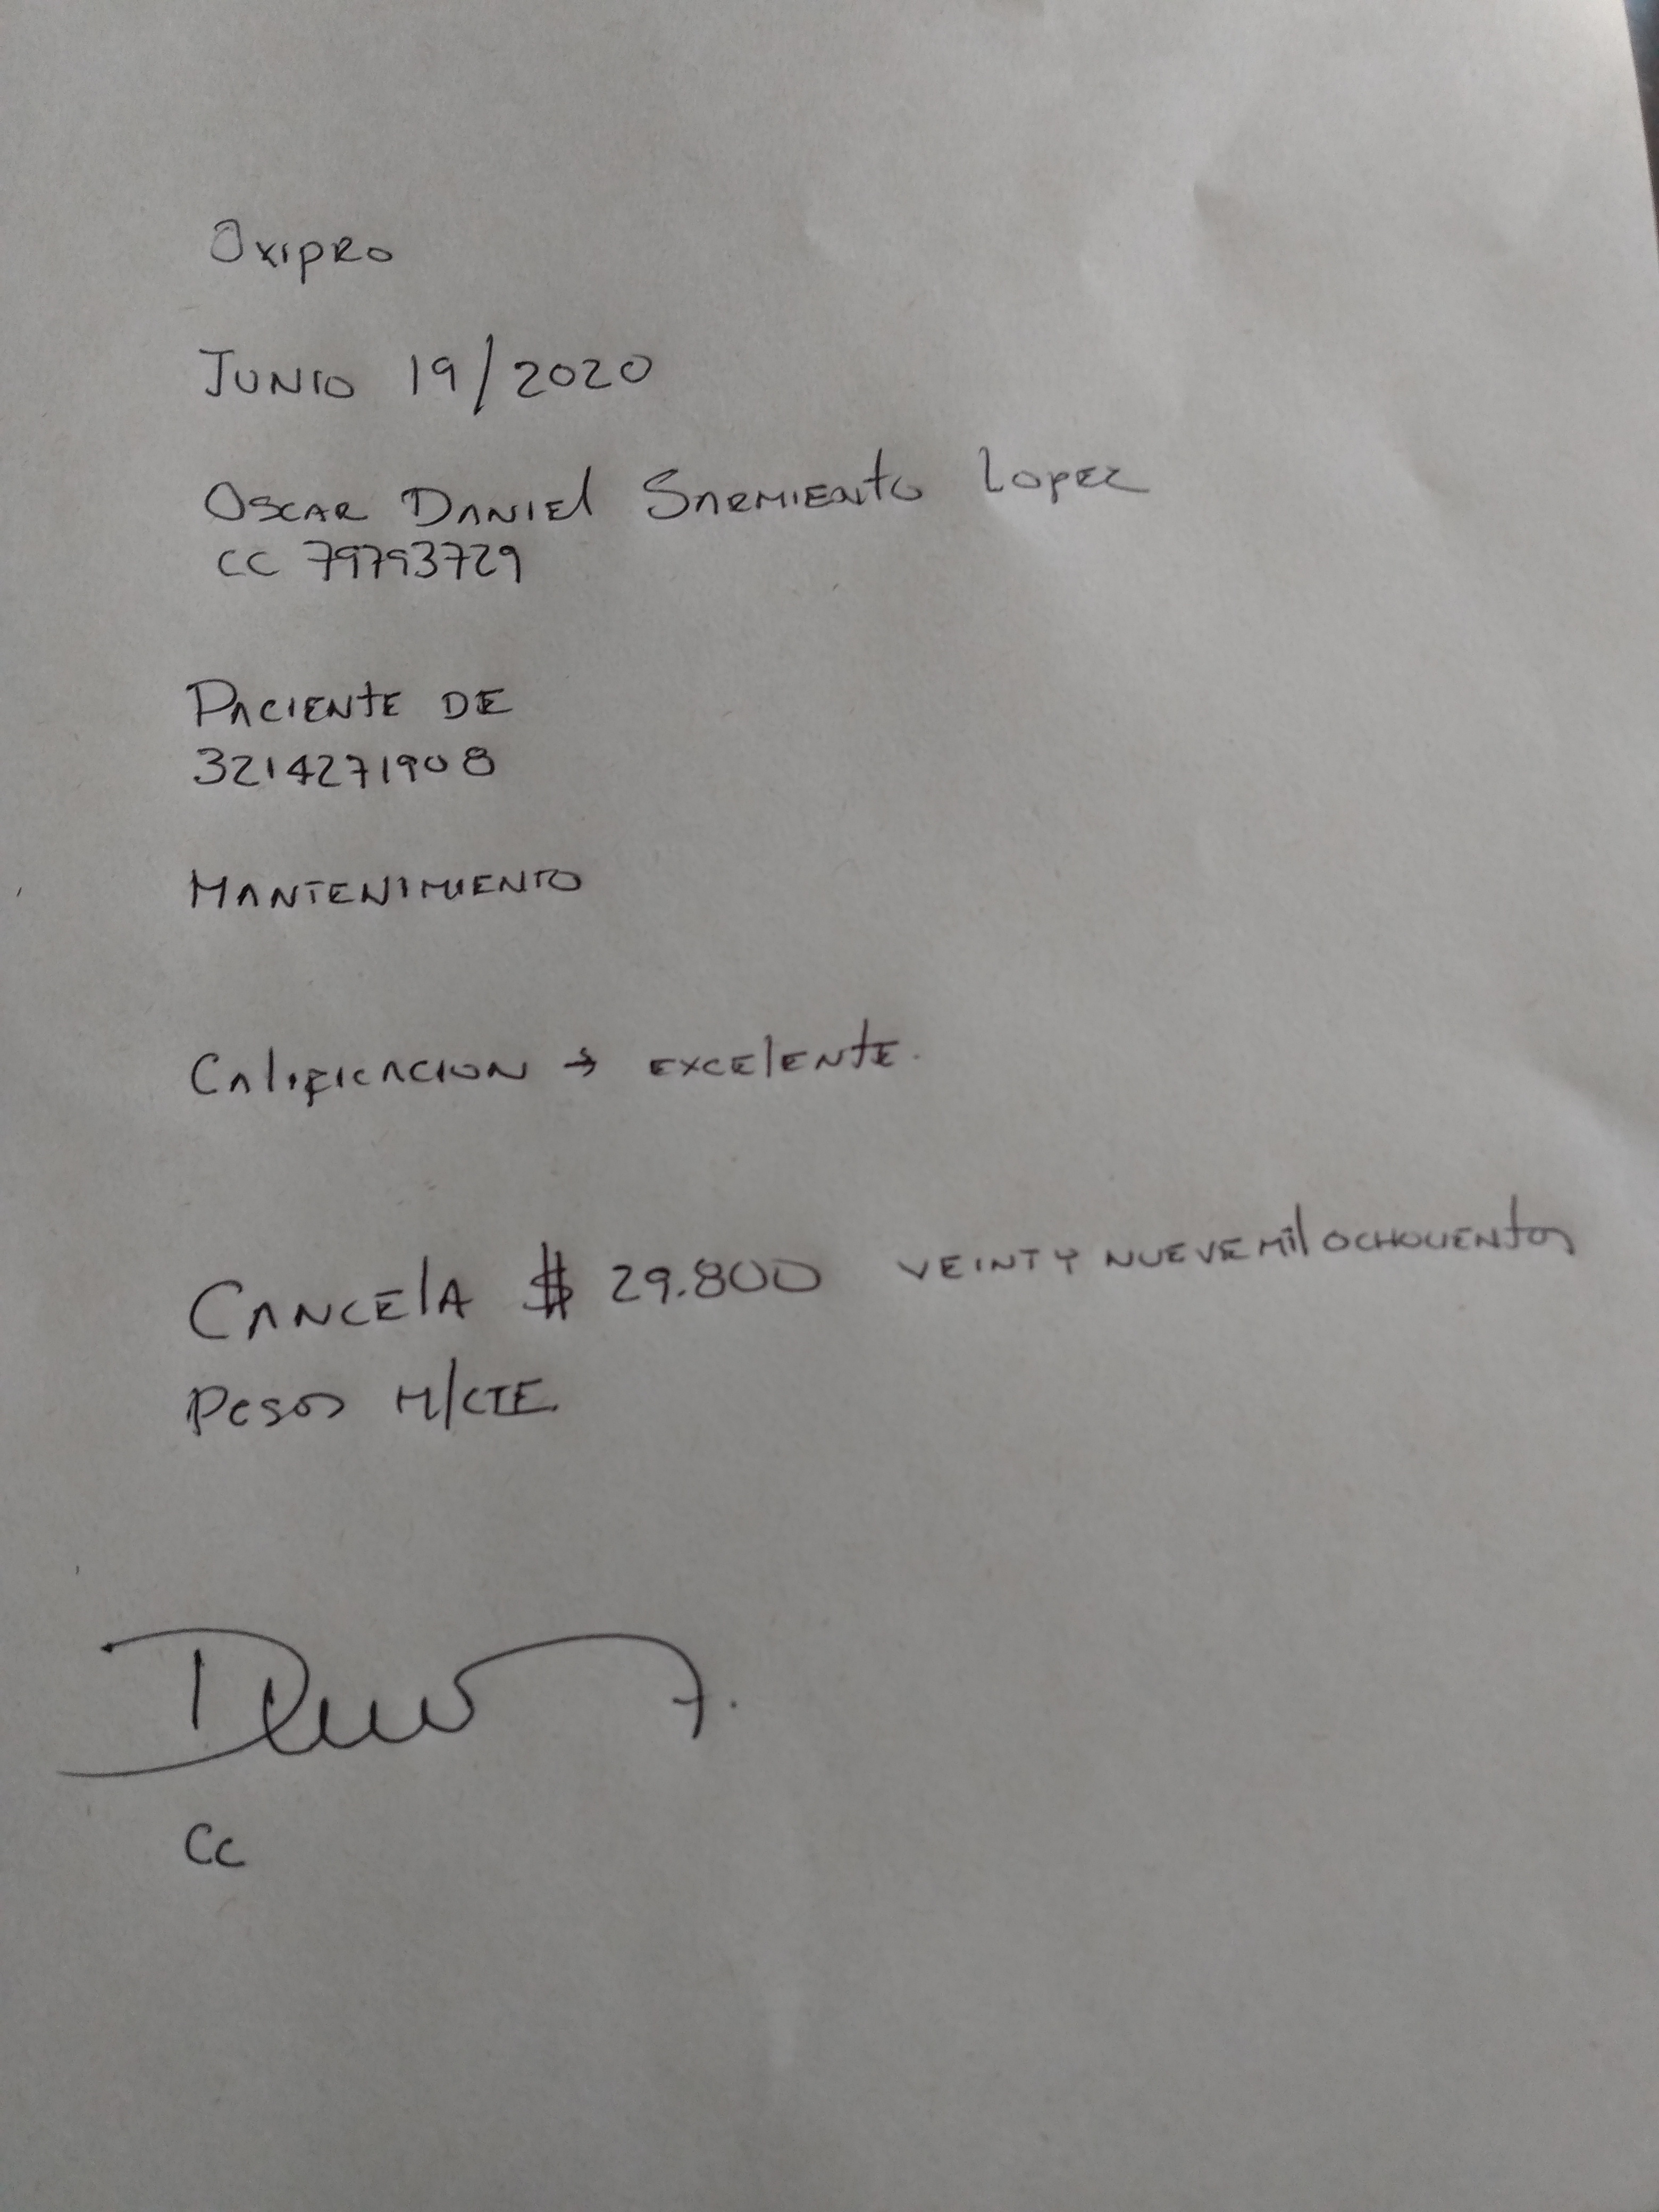 Oxipro
Junio 19/2020
Oscar Daniel Sarmiento Lopez
CC 79793729
Paciente de
3214271908
Mantenimiento
Calificacion → excelente.
Cancela $ 29.800 veinty nueve mil ochocientos
Pesos M/CTE.
Cc